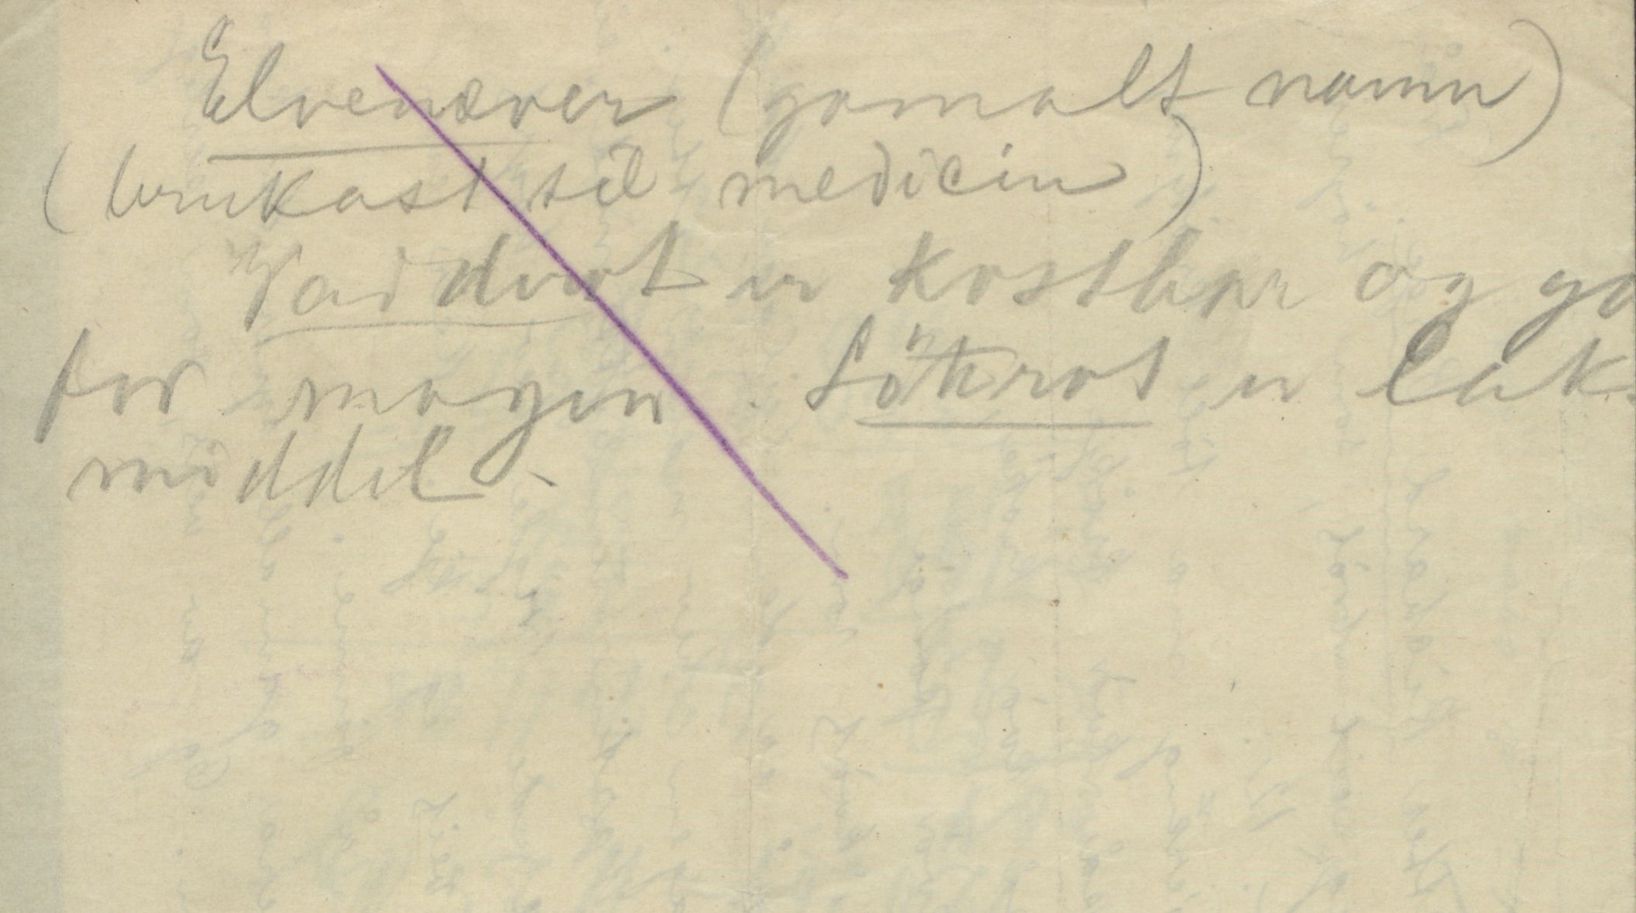 Elvenæver (gamalt namn)
(brukast til medicin)
er kostbar og go
for magen. Sötrot er Läk-
middel.